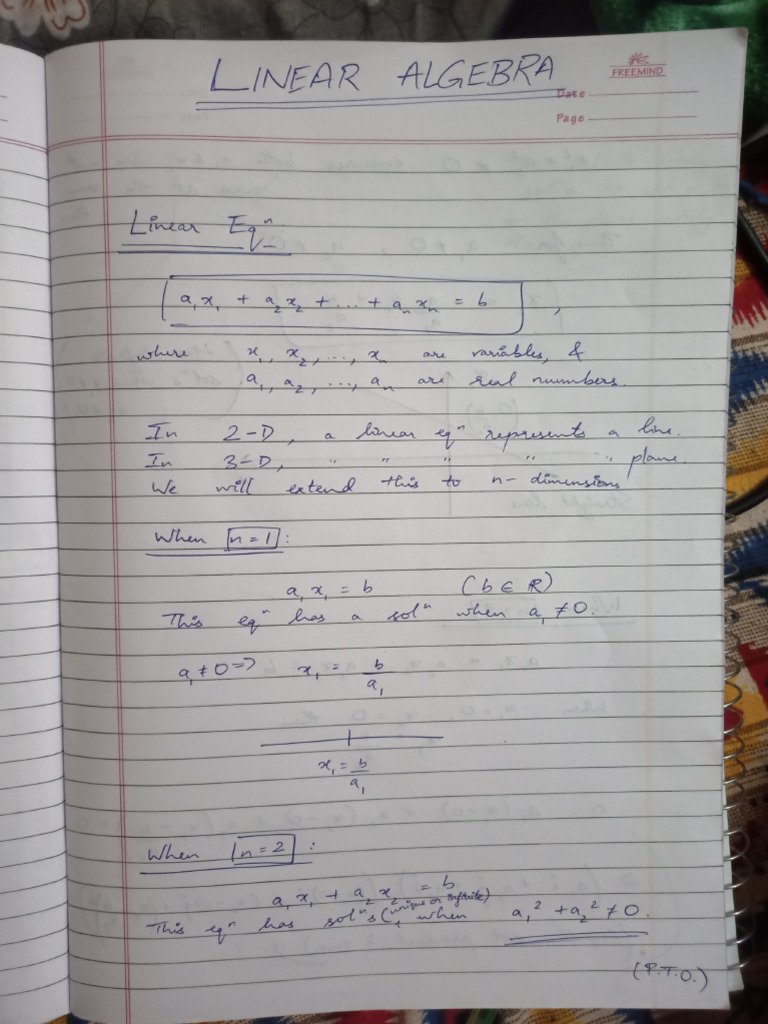 LINEAR ALGEBRA
FREEMIND
Date
Page
Linear Eqⁿ
a₁x₁ + a₂x₂ + ... + aₙxₙ = b ,
where x₁, x₂, ..., xₙ are variables, &
a₁, a₂, ..., aₙ are real numbers.
In 2-D, a linear eqⁿ represents a line.
In 3-D, " " " " " plane.
We will extend this to n-dimensions
When n = 1 :
a₁x₁ = b (b ∈ ℝ)
This eqⁿ has a solⁿ when a₁ ≠ 0.
a₁ ≠ 0 => x₁ = b/a₁
x₁ = b/a₁
When n = 2 :
a₁x₁ + a₂x₂ = b
This eqⁿ has solⁿs (unique or infinite) when a₁² + a₂² ≠ 0.
(P.T.O.)